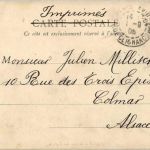 Imprimés
CARTE POSTALE
Ce côté est exclusivement réservé à l'adresse
Monsieur Julien Millisch
10 Rue des Trois Epis
Colmar
Alsace